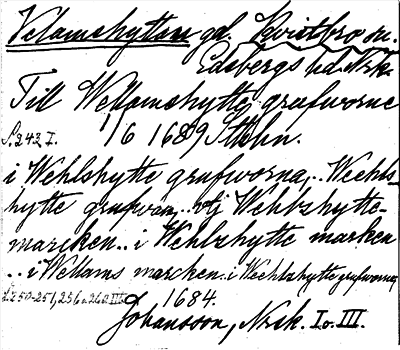 Vellamshyttan gd. Kvistbro sn.
Edsbergs hd. Nrk.
Till Wellamshytte grufworne
S. 243 I. 1/6 1689 Sthlm.
i Wehlshytte grufworna,.. Weehls-
hytte grufwan,.. wtj Wehlzhytte-
marcken.. i Wehlzhytte marken
.. i Wellams marcken.. i Weehlzhytte grufworna,
s. 250-251, 256 o. 260 III. 1684.
Johansson, Nrk. I o. III.